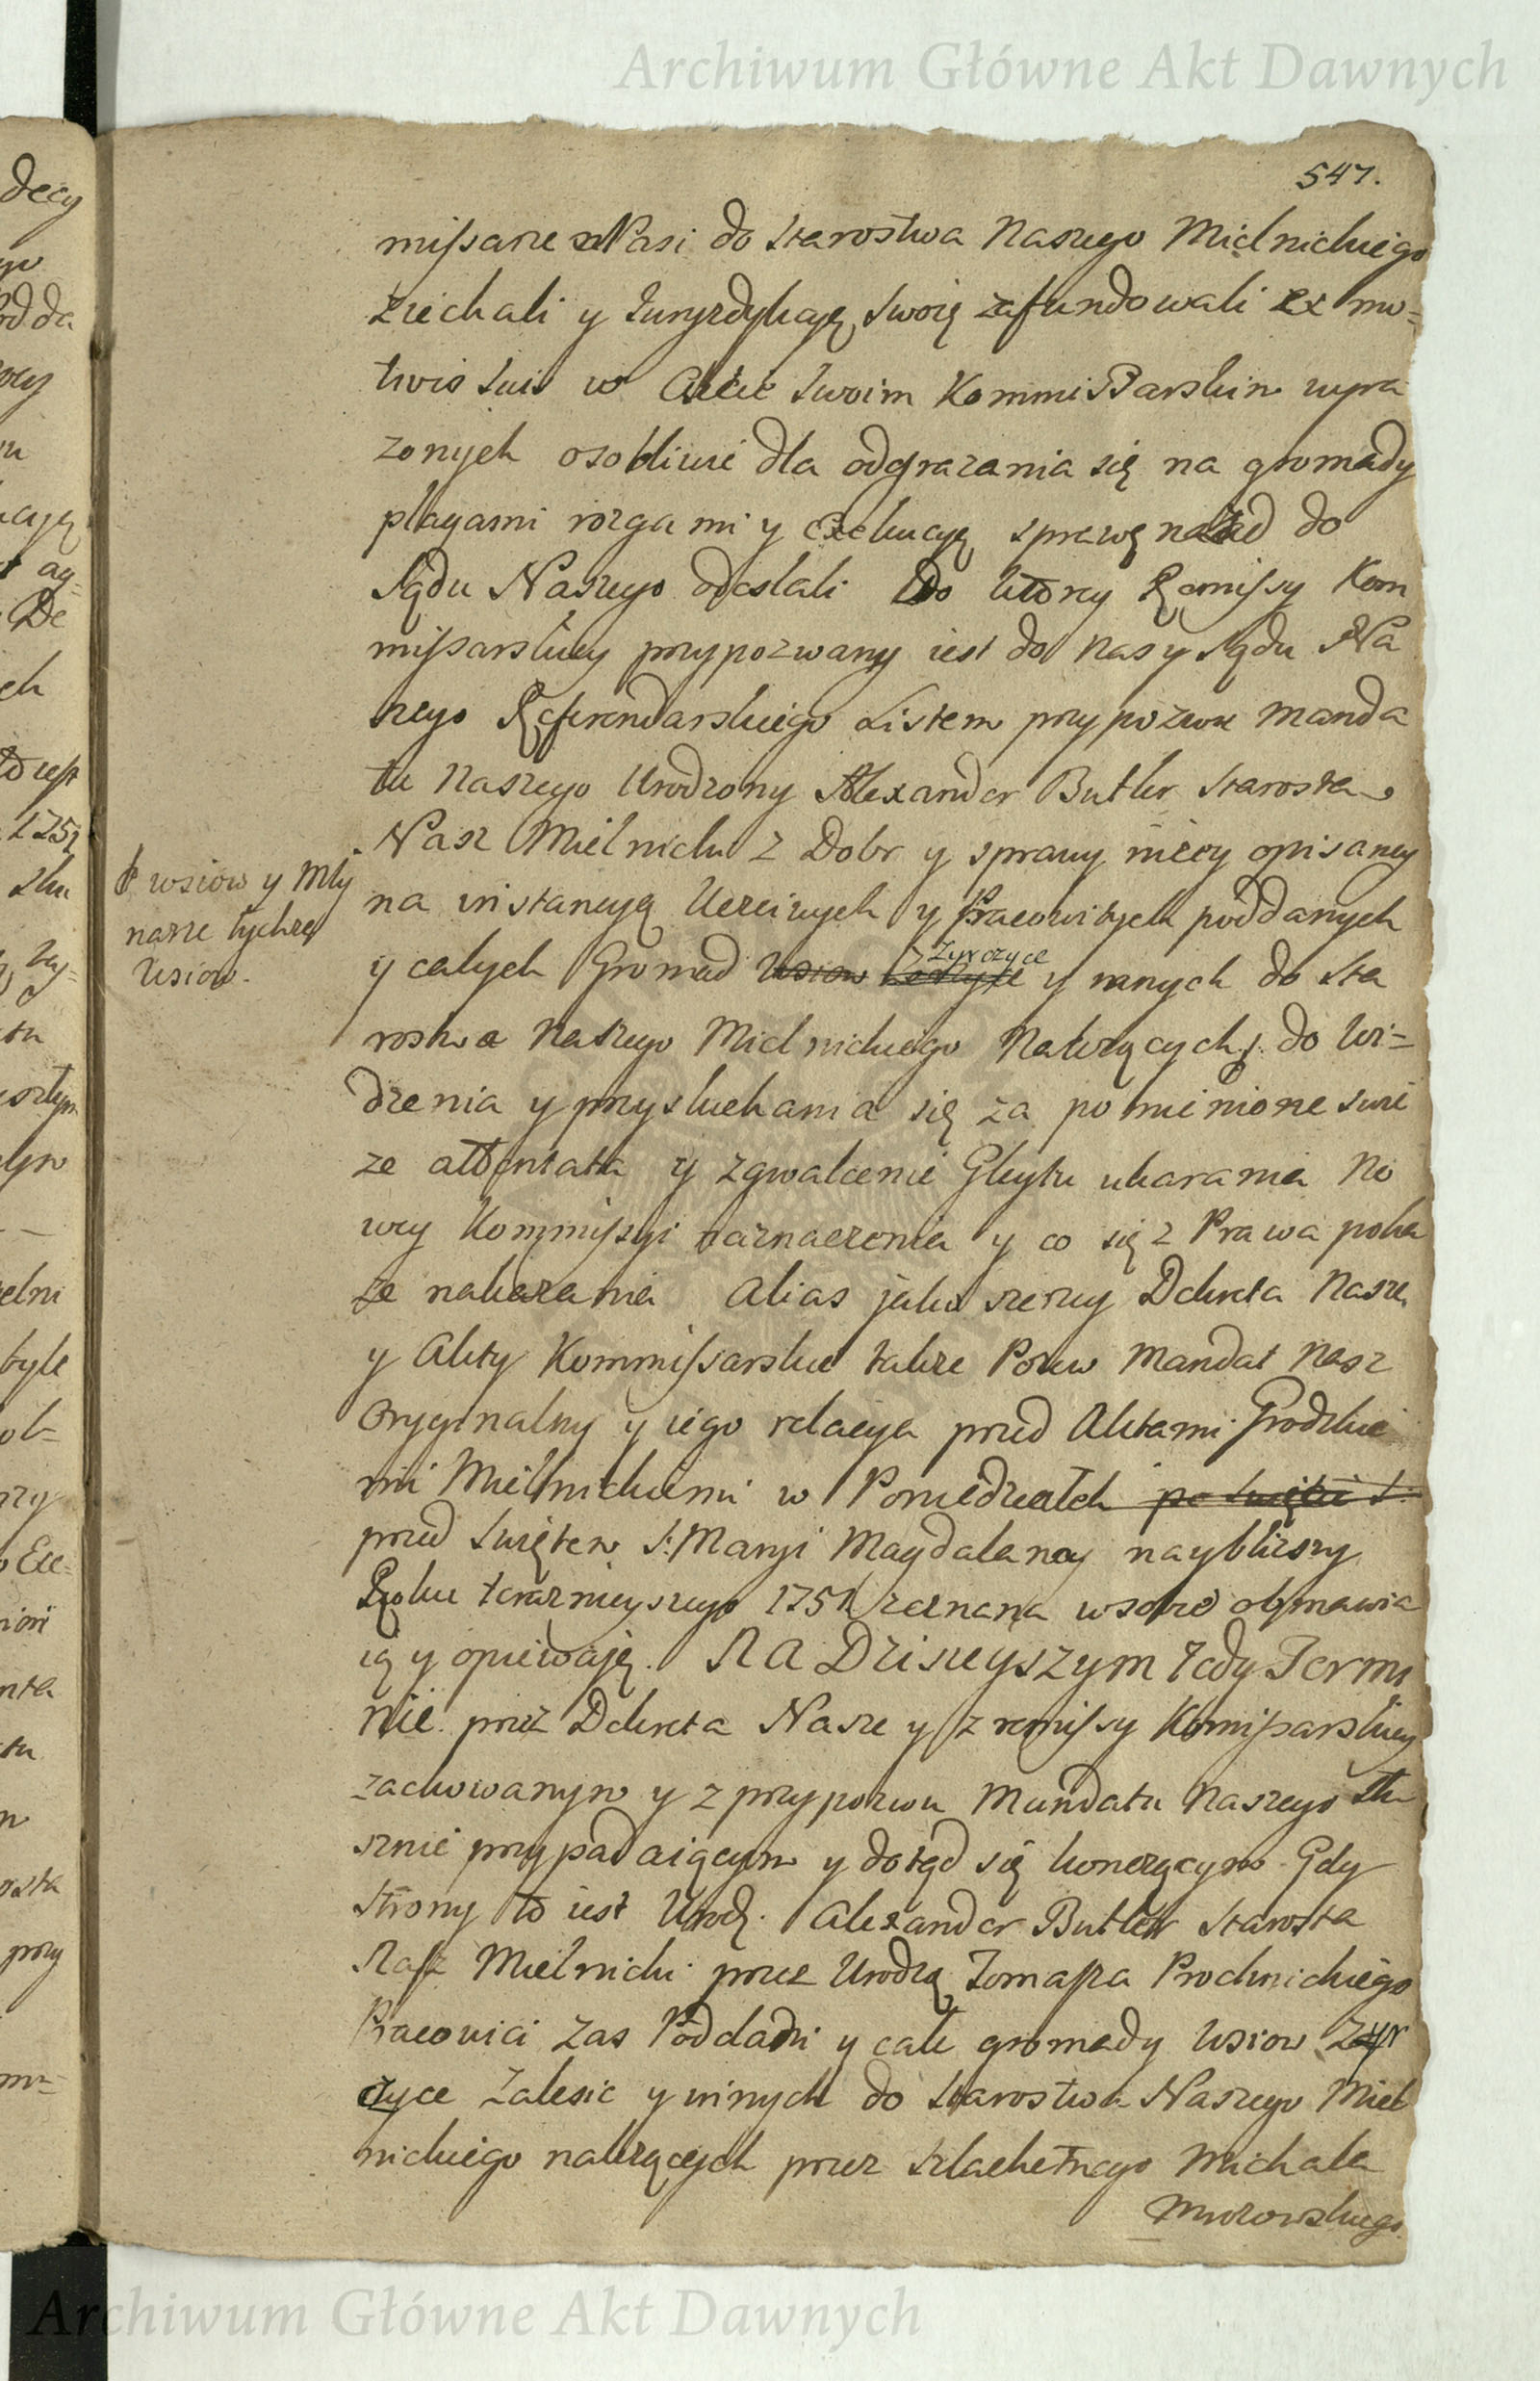 Archiwum Główne Akt Dawnych
547.
missarze Nasi do Starostwa Naszego Mielnickiego
ziechali y Jurysdykcyę swoię zafundowali ex mo=
tivis suis w Akcie swoim Kommissarskim wyra
zonych osobliwie dla odgrazania się na gromady
plagami rozgami y Exekucyę sprawę nazad do
Sądu Naszego odesłali Do ktorey Remissy Kom
missarskiey przypozwany iest do Nas y Sądu Na
szego Referendarskiego Listem przypozwu Manda
tu Naszego Urodzony Alexander Butler Starosta
Nasz Mielnicki z Dobr y sprawy niżey opisaney
na instancyą Uczciwych y Pracowitych poddanych
y całych Gromad wsiow Zyrczyce y innych do Sta
rostwa Naszego Mielnickiego Należących do Wi=
dzenia y przysłuchania się za pomienione swie
ze attentata y zgwałcenie Gleytu ukarania No
wey Kommissyi naznaczenia y co się z Prawa poka
ze nakazania Alias jako szerzey Dekreta Nasze
y Akty Kommissarskie także Pozew Mandat Nasz
Oryginalny y iego relacya przed Aktami Grodzkie
mi Mielnickiemi w Poniedziałek po święcie S.
przed Swiętem S: Maryi Magdaleny naybliższy
Roku teraznieyszego 1751 zeznana w sobie obmawia
ią y opiewaię. Na Dzisieyszym Tedy Termi
nie przez Dekreta Nasze y z remissy Komissarskiey
zachowanym y z przypozwu Mandatu Naszego słu
sznie przypadaiącym y dotąd się konczącym Gdy
Strony to iest Urodz. Alexander Butler Starosta
Nasz Mielnicki przez Urodzą Tomasza Prochnickiego
Pracowici zas Poddani y całe gromady wsiow Zyr
czyce Zalesie y innych do Starostwa Naszego Miel
nickiego należących przez szlachetnego Michała
Murowskiego
wsiow y Mły
narze tychże
Wsiow.
Archiwum Główne Akt Dawnych